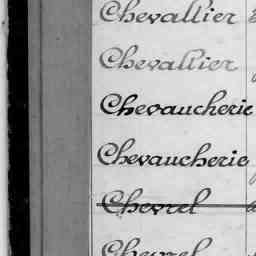 Chevallier
Chevallier
Chevaucherie
Chevaucherie
Chevrel
Chevrel